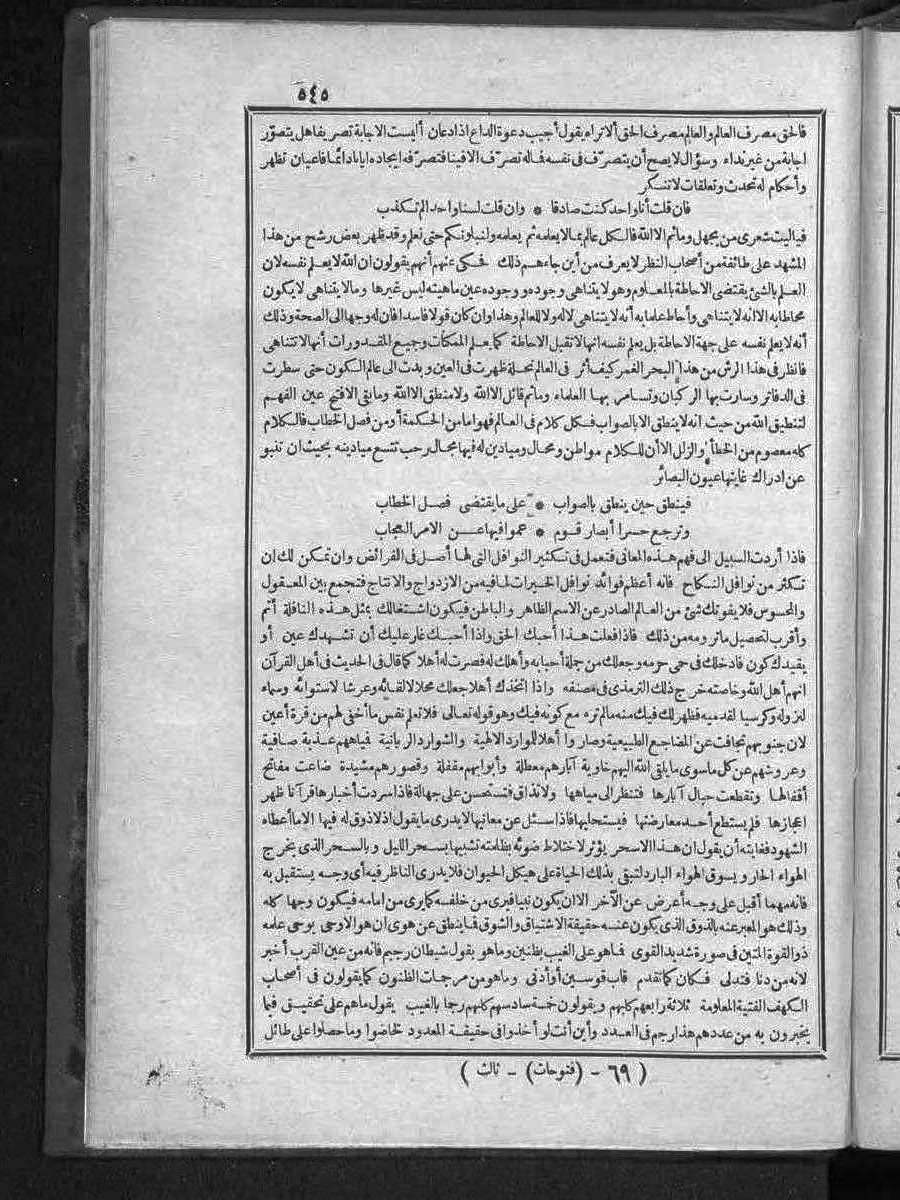 ٥٤٥
فالحق مصرف العالم والعالم مصرف الحق ألا تراه يقول أجيب دعوة الداع اذا دعان أليست الاجابة تصريفا هل يتصوّر
اجابة من غير نداء وسؤال لا يصح أن يتصرّف في نفسه فماله تصرّف الا فينا فتصرّفه ايجاده ايانا دائمًا فأعيان تظهر
وأحكام له تحدث وتعلقات لا تنكر
فان قلت أنا واحد كنت صادقا * وان قلت لسنا واحد الم تكذب
فياليت شعرى من يجهل وما ثم الا الله فالكل عالم بما لا يعلمه ثم يعلمه ولنبلونكم حتى نعلم وقد ظهر بعض رشح من هذا
المشهد على طائفة من أصحاب النظر لا يعرف من أين جاءهم ذلك فحكى عنهم أنهم يقولون ان الله لا يعلم نفسه لان
العلم بالشئ يقتضى الاحاطة بالمعلوم وهو لا يتناهى وجوده ووجوده عين ماهيته ليس غيرها وما لا يتناهى لا يكون
محاطا به الا انه لا يتناهى وأحاط علما به أنه لا يتناهى لا له ولا للعالم وهذا وان كان قولا فاسدا فان له وجها الى الصحة وذلك
أنه لا يعلم نفسه على جهة الاحاطة بل يعلم نفسه انها لا تقبل الاحاطة كما يعلم الممكنات وجميع المقدورات أنها لا تتناهى
فانظر في هذا الرش من هذا البحر الغمر كيف أثر في العالم نحلة ظهرت في العين وبدت الى عالم الكون حتى سطرت
في الدفاتر وسارت بها الركبان وتسامر بها العلماء وما ثم قائل الا الله ولا منطق الا الله وما بقى الا فتح عين الفهم
لتنطيق الله من حيث انه لا ينطق الا بالصواب فكل كلام في العالم فهو اما من الحكمة أو من فصل الخطاب فالكلام
كله معصوم من الخطأ والزلل الا أن للكلام مواطن ومحال وميادين له فيها مجال رحب تتسع ميادينه بحيث ان تنبو
عن ادراك غايتها عيون البصائر
فينطق حين ينطق بالصواب * على ما يقتضى فصل الخطاب
وترجع حسرا أبصار قوم * عموا فيها عن الامر العجاب
فاذا أردت السبيل الى فهم هذه المعانى فتعمل في تكثير النوافل التى لها أصل في الفرائض وان تمكن لك ان
تكثر من نوافل النكاح فانه أعظم فوائد نوافل الخيرات لما فيه من الازدواج والانتاج فتجمع بين المعقول
والمحسوس فلا يفوتك شئ من العالم الصادر عن الاسم الظاهر والباطن فيكون اشتغالك بمثل هذه النافلة أتم
وأقرب لتحصيل ما ترومه من ذلك فاذا فعلت هذا أحبك الحق واذا أحبك غار عليك أن تشهدك عين أو
يقيدك كون فأدخلك في حمى حرمه وجعلك من جملة أحبابه وأهلك له فصرت له أهلا كما قال في الحديث في أهل القرآن
انهم أهل الله وخاصته خرج ذلك الترمذى في مصنفه واذا اتخذك أهلا جعلك محلا لالقائه وعرشا لاستوائه وسماء
لنزوله وكرسيا لقدميه فظهر لك فيك منه ما لم تره مع كونه فيك وهو قوله تعالى فلا تعلم نفس ما أخفى لهم من قرة أعين
لان جنوبهم تجافت عن المضاجع الطبيعية وصاروا أهلا للموارد الالهية والشوارد الربانية فمياههم عذبة صافية
وعروشهم عن كل ما سوى ما يلقى الله اليهم خاوية آبارهم معطلة وأبوابهم مقفلة وقصورهم مشيدة ضاعت مفاتح
أقفالها وتقطعت حبال آبارها فتنظر الى مياهها ولا تذاق فتستحسن على جهالة فاذا سردت أخبارها قرآنا ظهر
اعجازها فلم يستطع أحد معارضتها فيستحليها فاذا سئل عن معانيها لا يدرى ما يقول اذ لا ذوق له فيها الا ما أعطاه
الشهود فغايته أن يقول ان هذا الا سحر يؤثر لاختلاط ضوئه بظلمته تشبها بسحر الليل وبالسحر الذى يخرج
الهواء الحار ويسوق الهواء البارد لتبقى بذلك الحياة على هيكل الحيوان فلا يدرى الناظر فيه أى وجه يستقبل به
فانه مهما أقبل على وجه أعرض عن الآخر الا ان يكون نبيا فيرى من خلفه كما يرى من امامه فيكون وجها كله
وذلك هو المعبر عنه بالذوق الذى يكون عنه حقيقة الاشتياق والشوق فما ينطق عن هوى ان هو الا وحى يوحى علمه
ذو القوة المتين في صورة شديد القوى فما هو على الغيب بظنين وما هو بقول شيطان رجيم فانه من عين القرب أخبر
لانه من دنا فتدلى فكان كما تقدم قاب قوسين أو أدنى وما هو من مرجمات الظنون كما يقولون في أصحاب
الكهف الفتية المعلومة ثلاثة رابعهم كلبهم ويقولون خمسة سادسهم كلبهم رجما بالغيب يقول ما هم على تحقيق فيما
يخبرون به من عددهم هذا رجم في العدد وأين أنت لو أخذوا في حقيقة المعدود لخاضوا وما حصلوا على طائل
( ٦٩ - (فتوحات) - ثالث )